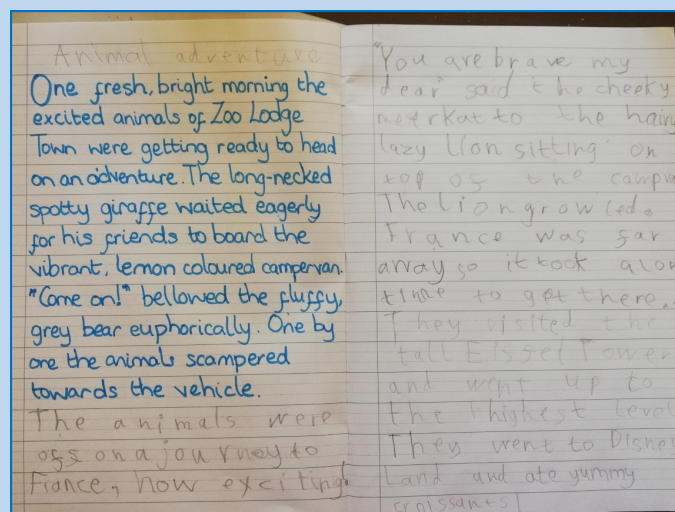 Animal adventure
One fresh, bright morning the
excited animals of Zoo Lodge
Town were getting ready to head
on an adventure. The long-necked
spotty giraffe waited eagerly
for his friends to board the
vibrant, lemon coloured campervan.
"Come on!" bellowed the fluffy,
grey bear euphorically. One by
one the animals scampered
towards the vehicle.
The animals were
off on a journey to
France, how exciting!
"You are brave my
dear" said the cheeky
meerkat to the hairy
lazy lion sitting on
top of the campv
The lion growled.
France was far
away so it took a lon
time to get there.
They visited the
tall Eiffel Tower
and went up to
the highest level
They went to Disne
Land and ate yummy
croissants!